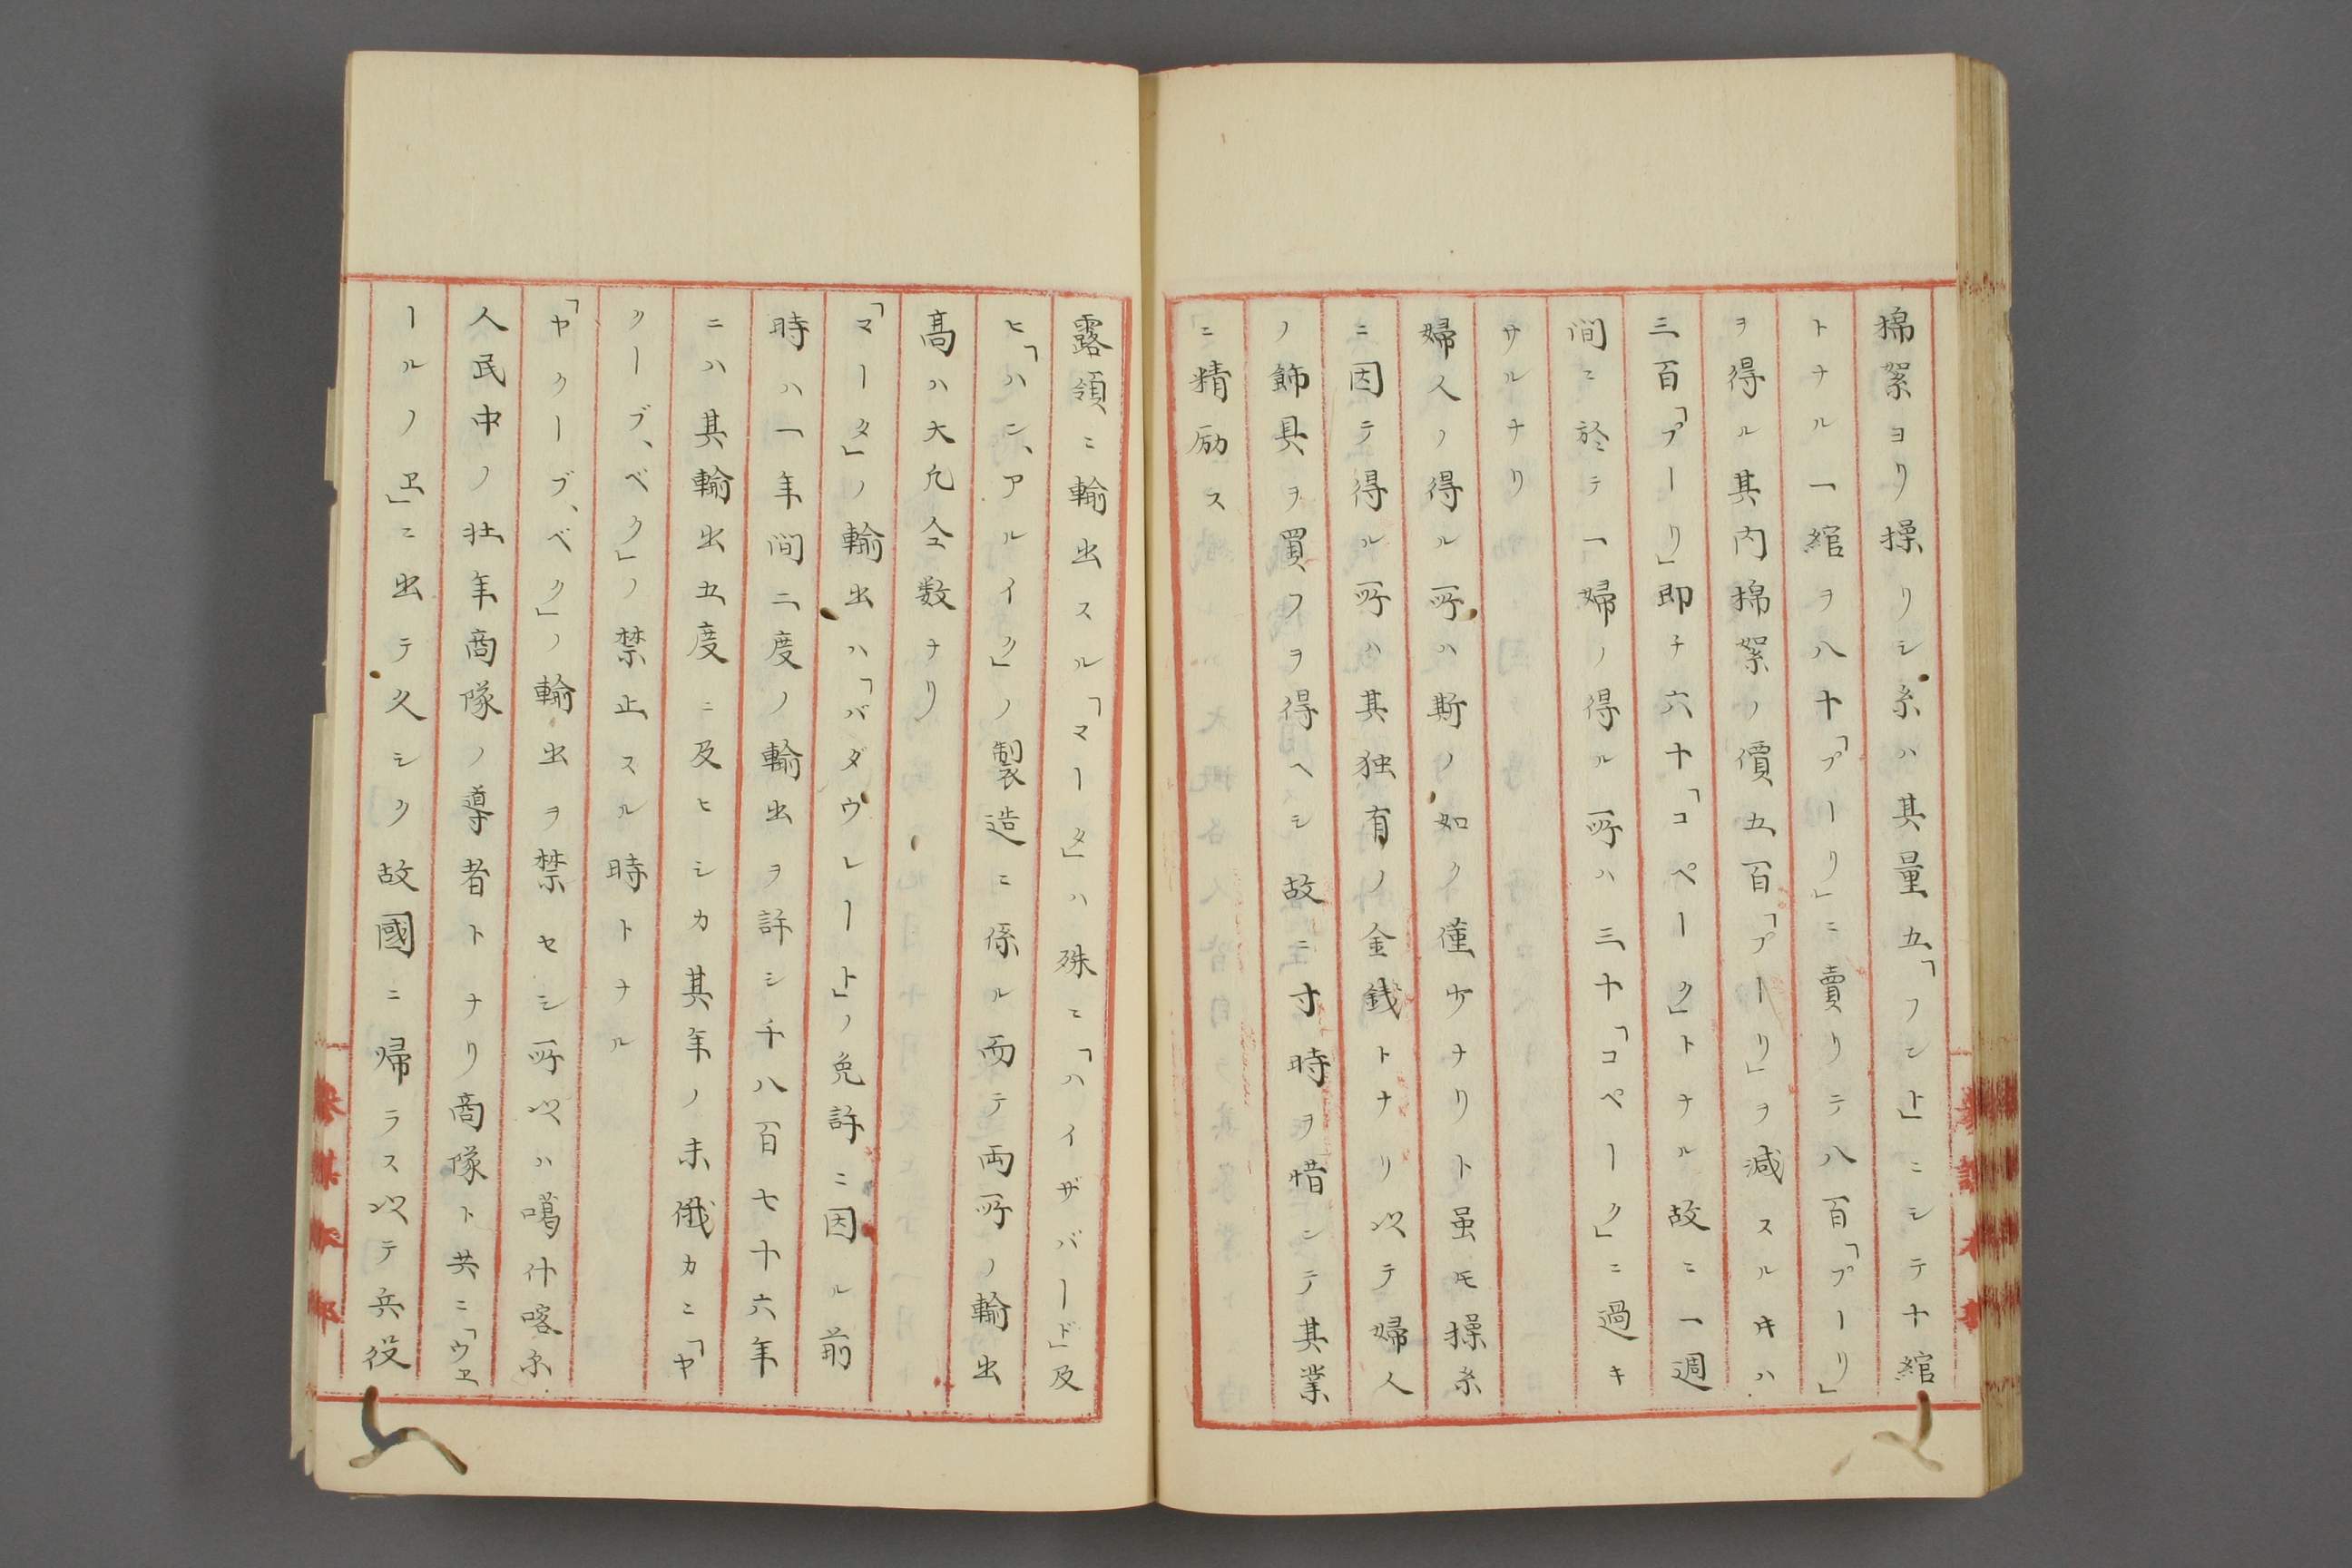 棉絮ヨリ操リシ糸ハ其量五「フント」ニシテ十綰
トナル一綰ヲ八十「プーリ」ニ賣リテ八百「プーリ」
ヲ得ル其内棉絮ノ價五百「プーリ」ヲ減スル𪜈ハ
三百「プーリ」即チ六十「コペーク」トナル故ニ一週
間ニ於テ一婦ノ得ル所ハ三十「コペーク」ニ過キ
サルナリ
婦人ノ得ル所ハ斯ノ如ク僅少ナリト虽モ操糸
ニ因テ得ル所ハ其独有ノ金銭トナリ以テ婦人
ノ飾具ヲ買フヲ得ヘシ故ニ寸時ヲ惜ンテ其業
ニ精励ス
露領ニ輸出スル「マータ」ハ殊ニ「ハイザバード」及
ヒ「ハン、アルイク」ノ製造ニ係ル而テ両所ノ輸出
高ハ大凢全数ナリ
「マータ」ノ輸出ハ「バダウレート」ノ免許ニ因ル前
時ハ一年間二度ノ輸出ヲ許シ千八百七十六年
ニハ其輸出五度ニ及ヒシカ其年ノ末俄カニ「ヤ
クーブ、ベク」ノ禁止スル時トナル
「ヤクーブ、ベク」ノ輸出ヲ禁セシ所以ハ噶什喀尓
人民中ノ壮年商隊ノ導者トナリ商隊ト共ニ「ウヱ
ールノヱ」ニ出テ久シク故國ニ帰ラス以テ兵役